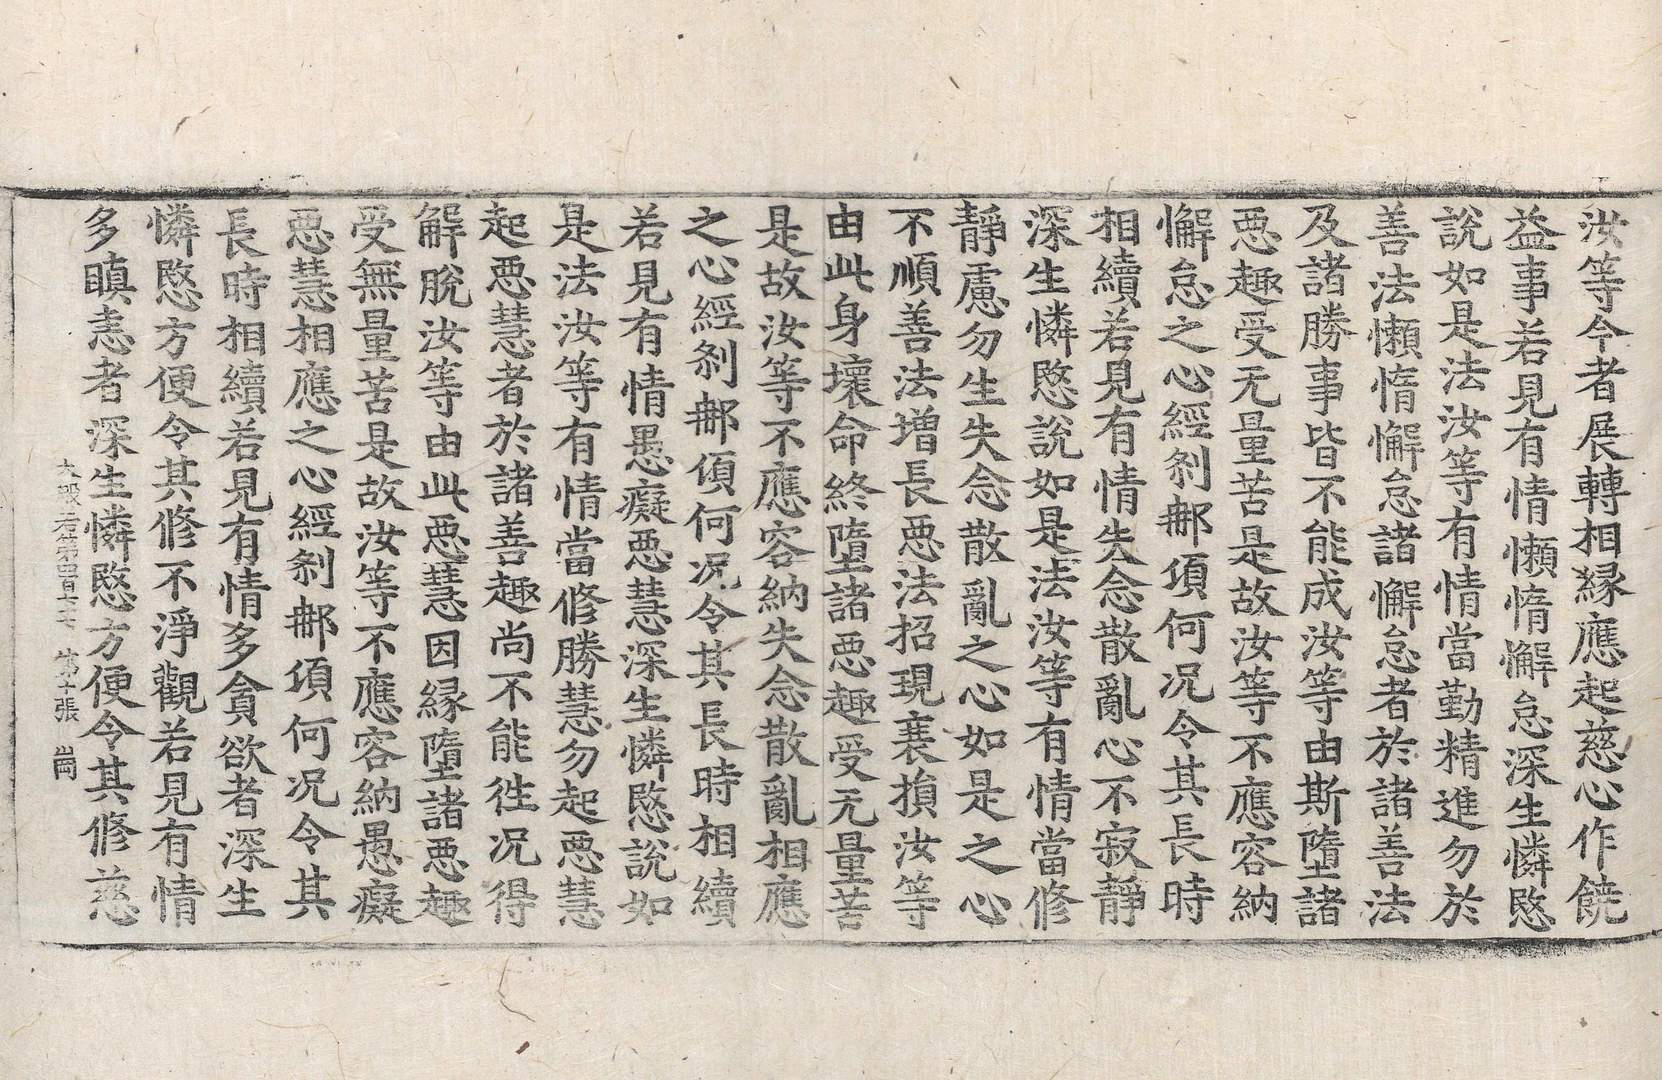 汝等今者展轉相緣應起慈心作饒
益事若見有情懶惰懈怠深生憐愍
說如是法汝等有情當勤精進勿於
善法懶惰懈怠諸懈怠者於諸善法
及諸勝事皆不能成汝等由斯墮諸
惡趣受无量苦是故汝等不應容納
懈怠之心經剎那頃何况令其長時
相續若見有情失念散亂心不寂靜
深生憐愍說如是法汝等有情當修
靜慮勿生失念散亂之心如是之心
不順善法增長惡法招現衰損汝等
由此身壞命終墮諸惡趣受无量苦
是故汝等不應容納失念散亂相應
之心經剎那頃何况令其長時相續
若見有情愚癡惡慧深生憐愍說如
是法汝等有情當修勝慧勿起惡慧
起惡慧者於諸善趣尚不能往况得
解脫汝等由此惡慧因緣墮諸惡趣
受無量苦是故汝等不應容納愚癡
惡慧相應之心經剎那頃何况令其
長時相續若見有情多貪欲者深生
憐愍方便令其修不淨觀若見有情
多瞋恚者深生憐愍方便令其修慈
大般若第四百六十 第十張 崗